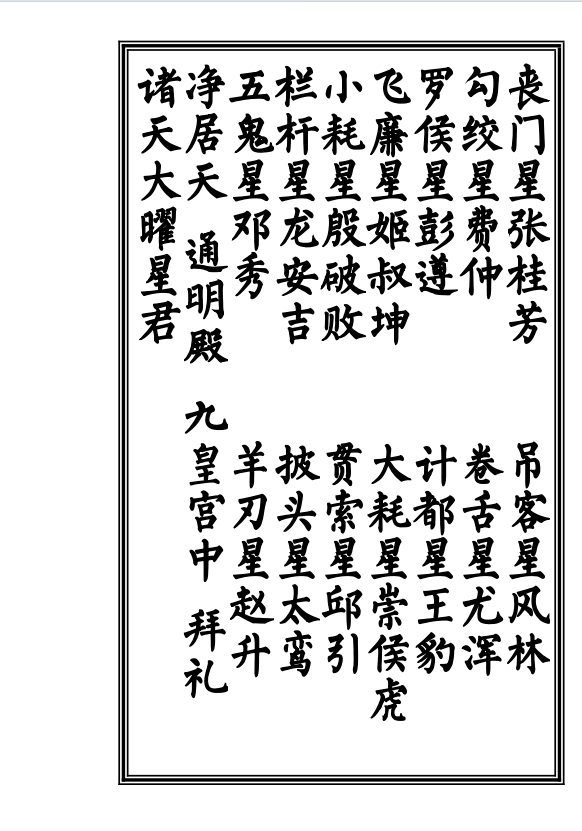 丧门星张桂芳 吊客星风林
勾绞星费仲 卷舌星尤浑
罗侯星彭遵 计都星王豹
飞廉星姬叔坤 大耗星崇侯虎
小耗星殷破败 贯索星邱引
栏杆星龙安吉 披头星太鸾
五鬼星邓秀 羊刃星赵升
净居天 通明殿 九皇宫中 拜礼
诸天大曜星君